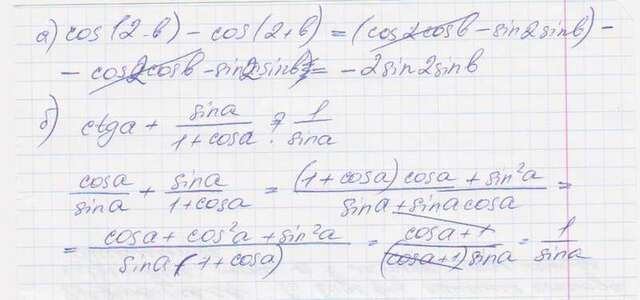 а) cos(2-в) - cos(2+в) = (cos2cosв - sin2sinв) -
- cos2cosв - sin2sinв) = - 2sin2sinв
б) ctga + sina/(1+cosa) = 1/sina
cosa/sina + sina/(1+cosa) = ((1+cosa)cosa + sin²a)/(sina + sinacosa) =
= (cosa + cos²a + sin²a)/(sina(1+cosa)) = (cosa+1)/((cosa+1)sina) = 1/sina